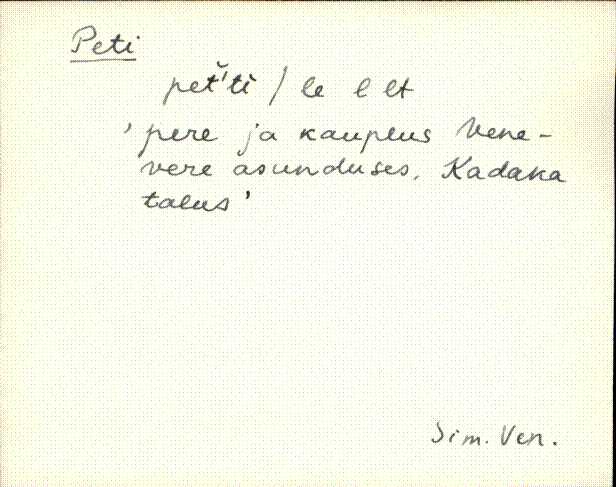 Peti
pet̆'ti / le l lt
'pere ja kauplus Vene-
vere asunduses, Kadaka
talus'
Sim. Ven.